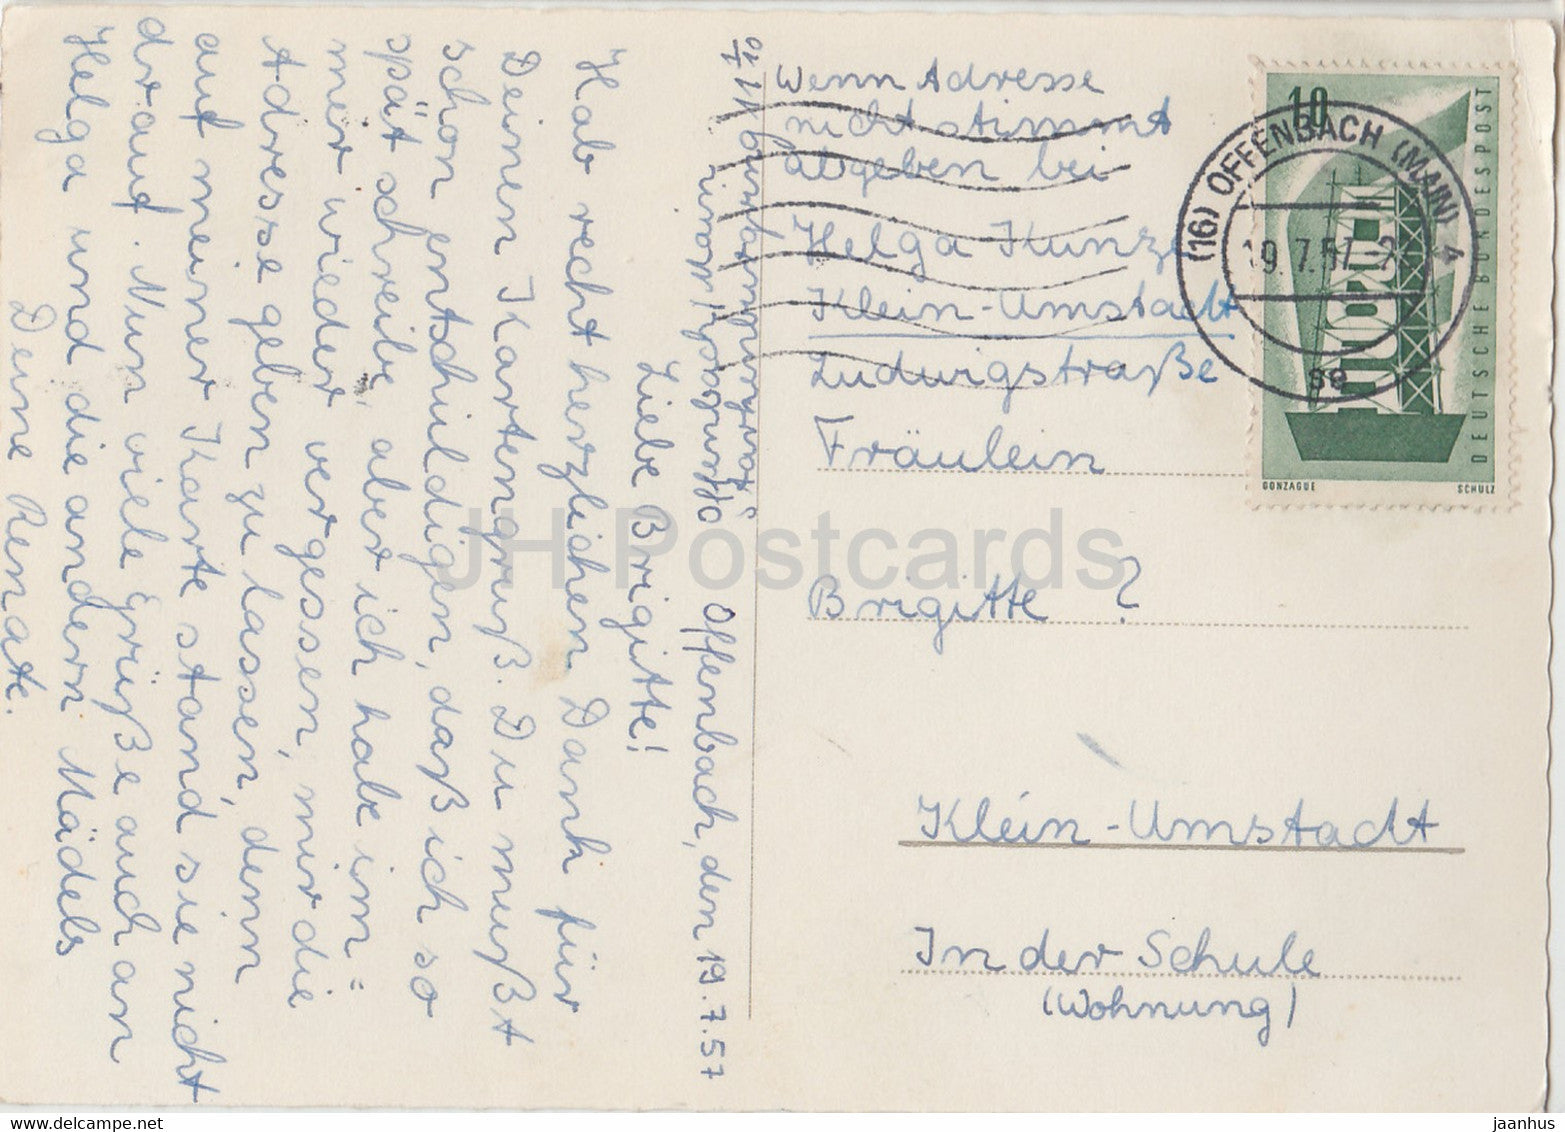 Offenbach, den 19.7.57
Liebe Brigitte!
Hab recht herzlichen Dank für
Deinen Kartengruß. Du mußt
schon entschuldigen, daß ich so
spät schreibe, aber ich habe im=
mer wieder vergessen, mir die
Adresse geben zu lassen, denn
auf meiner Karte stand sie nicht
drauf. Nun viele Grüße auch an
Helga und die andern Mädels
Deine Renate.
Offenbach/Main
Wenn Adresse
nicht stimmt
abgeben bei
Helga Kunze
Klein-Umstadt
Ludwigstraße
Fräulein
Brigitte ?
Klein-Umstadt
In der Schule
(Wohnung)
10
DEUTSCHE BUNDESPOST
EUROPA
GONZAGUE SCHULZ
(16) OFFENBACH (MAIN) 4
19.7.57
se
JH Postcards
jaanhus
delcampe.net